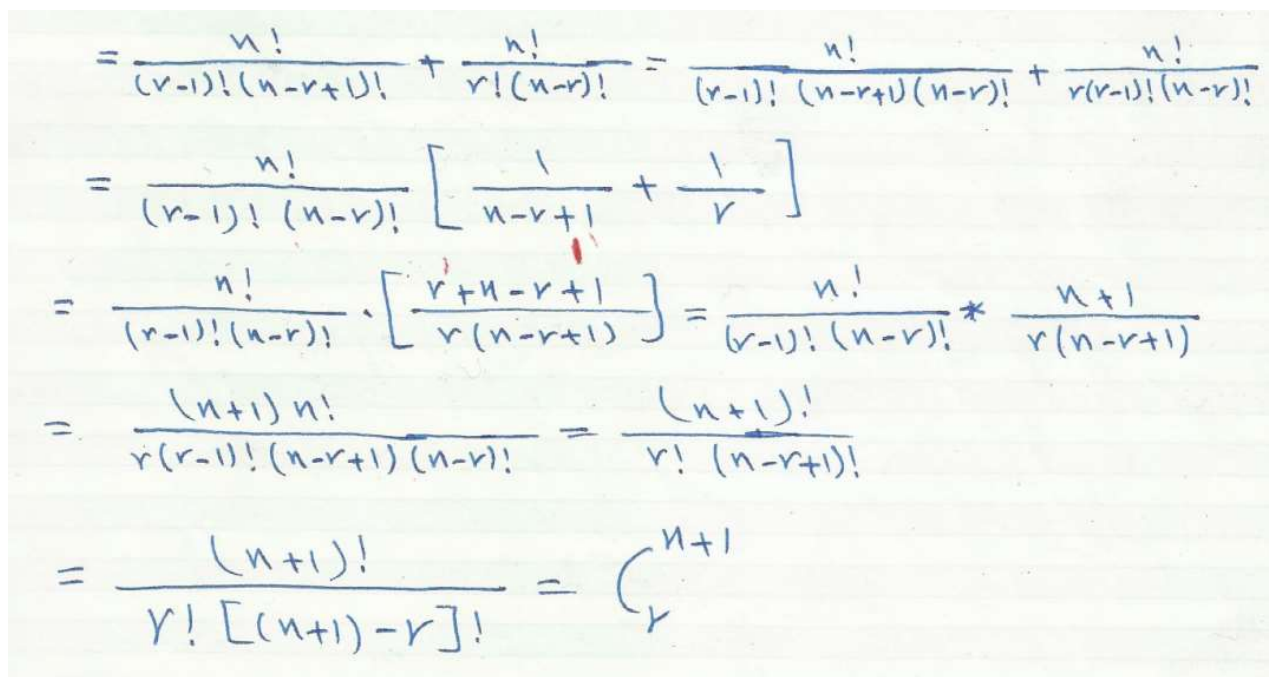 = n!/((r-1)!(n-r+1)!) + n!/(r!(n-r)!) = n!/((r-1)! (n-r+1)(n-r)!) + n!/(r(r-1)!(n-r)!)
= n!/((r-1)! (n-r)!) [ 1/(n-r+1) + 1/r ]
= n!/((r-1)!(n-r)!) · [ (r+n-r+1)/(r(n-r+1)) ] = n!/((r-1)! (n-r)!) * (n+1)/(r(n-r+1))
= (n+1) n!/(r(r-1)!(n-r+1)(n-r)!) = (n+1)!/(r! (n-r+1)!)
= (n+1)!/(r! [(n+1)-r]!) = C_r^{n+1}